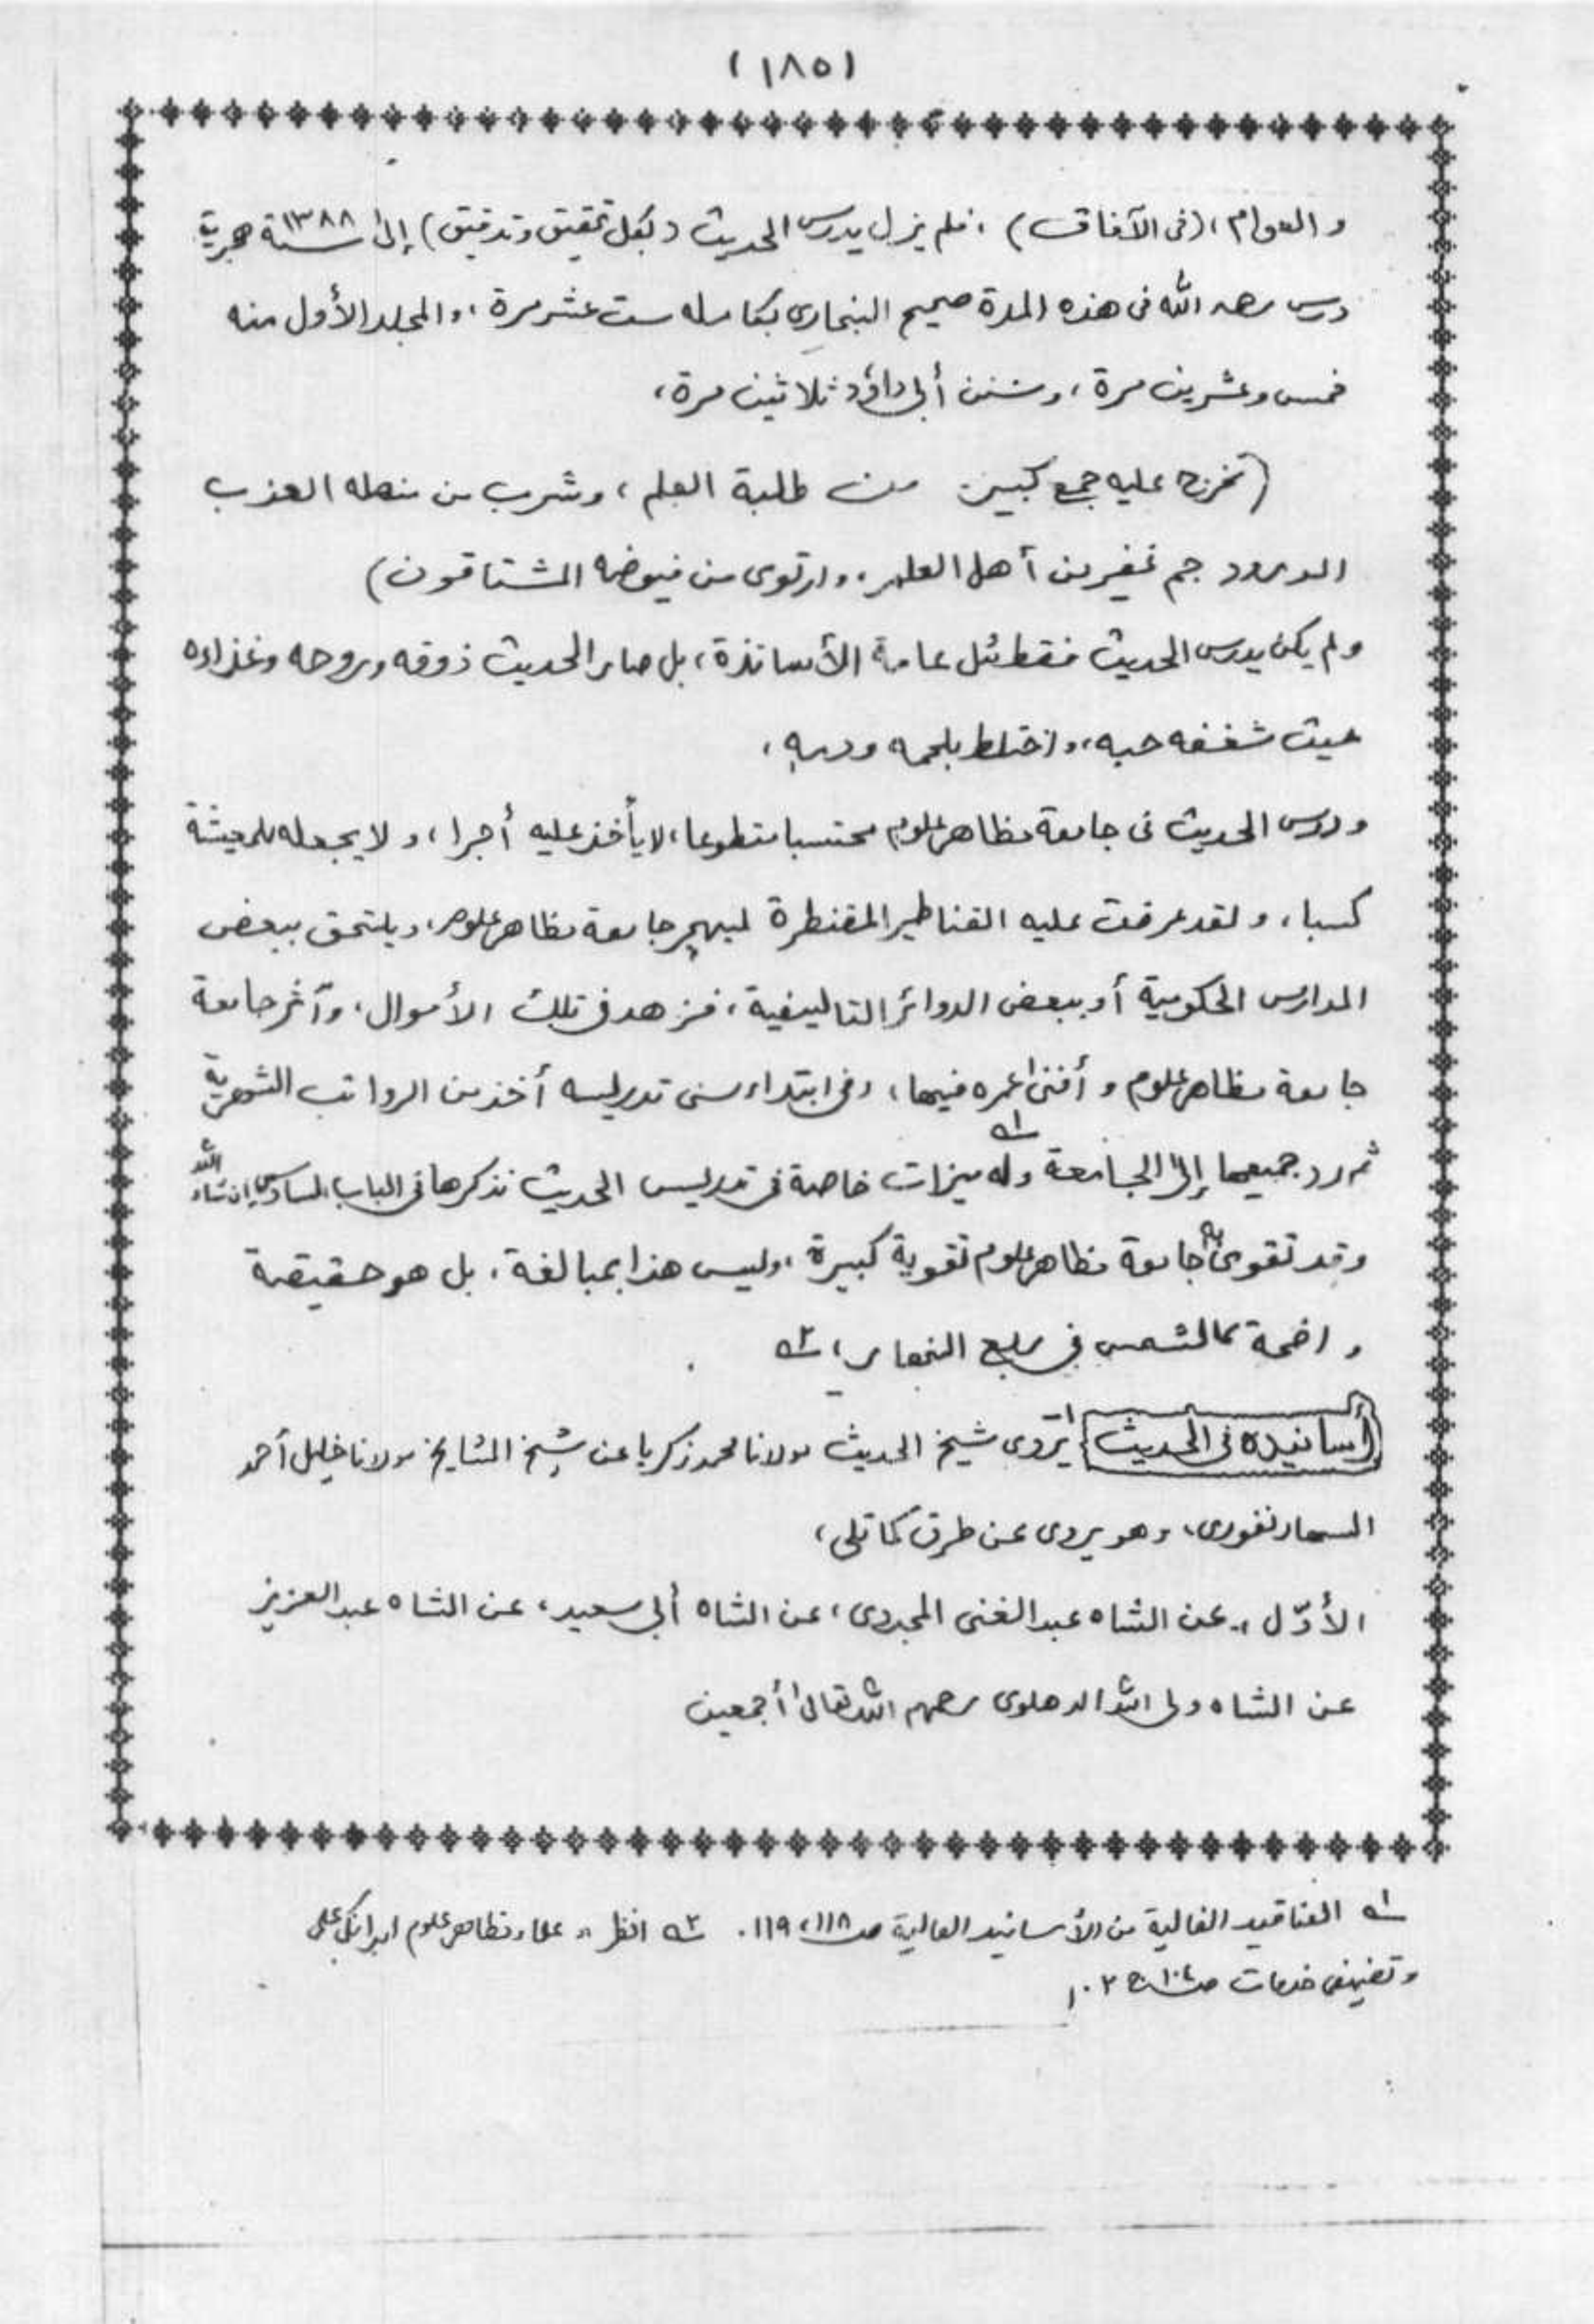 (١٨٥)
والعوام، (فى الآفاق)، فلم يزل يدرس الحديث (بكل تحقيق وتدقيق) إلى سنة ١٣٨٨ هجرية
درس رحمه الله فى هذه المدة صحيح البخارى بكامله ست عشر مرة، والمجلد الأول منه
خمس وعشرين مرة، وسنن أبى داؤد ثلاثين مرة،
(تخرج عليه جمع كبير من طلبة العلم، وشرب من منهله العذب
المورود جم غفير من أهل العلم، وارتوى من فيوضه المشتاقون)
ولم يكن يدرس الحديث فقط مثل عامة الأساتذة، بل صار الحديث ذوقه وروحه وغذاءه
حيث شغفه حبه، واختلط بلحمه ودمه،
ودرس الحديث فى جامعة مظاهر علوم محتسبا متطوعا، لا يأخذ عليه أجرا، ولا يجعله للمعيشة
كسبا، ولقد عرضت عليه القناطير المقنطرة ليهجر جامعة مظاهر علوم، ويلتحق ببعض
المدارس الحكومية أو ببعض الدوائر التاليفية، فزهد فى تلك الأموال، وآثر جامعة
جامعة مظاهر علوم وأفنى عمره فيها، وفى ابتداء سنى تدريسه أخذ من الرواتب الشهرية
ثم رد جميعها إلى الجامعة ١ وله ميزات خاصة فى تدريس الحديث نذكرها فى الباب السادس إن شاء الله
وقد تقوى به جامعة مظاهر علوم تقوية كبيرة، وليس هذا بمبالغة، بل هو حقيقة
واضحة كالشمس في رابع النهار، ٢
أسانيده فى الحديث يروى شيخ الحديث مولانا محمد زكريا عن شيخ المشايخ مولانا خليل أحمد
السهارنفورى، وهو يروى عن طرق كما تلى،
الأوّل :- عن الشاه عبد الغنى المجددى، عن الشاه أبى سعيد، عن الشاه عبد العزيز
عن الشاه ولى الله الدهلوى رحمهم الله تعالى أجمعين
١ العناقيد الغالية من الأسانيد العالية صـ ١١٨، ١١٩. ٢ انظر علماء مظاهر علوم اور انكى علمى
وتصنيفى خدمات صـ ١٠٤ ج ٢.